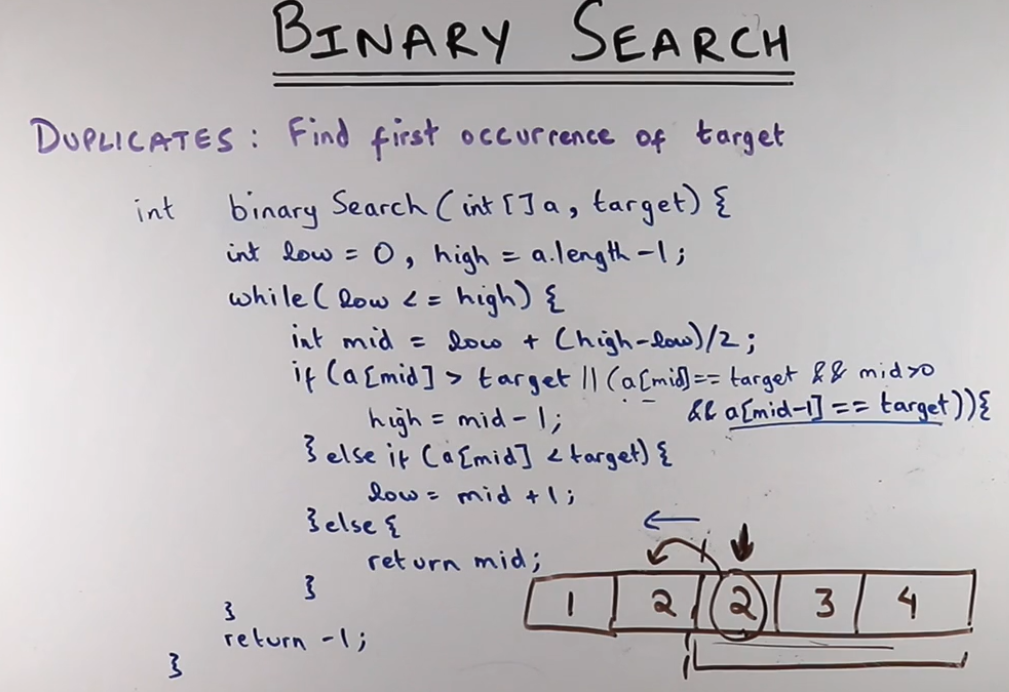 BINARY SEARCH
DUPLICATES: Find first occurrence of target
int binary Search (int []a, target) {
int low = 0, high = a.length-1;
while( low <= high) {
int mid = low + (high-low)/2;
if (a[mid] > target || (a[mid]== target && mid>0
&& a[mid-1] == target)){
high = mid-1;
} else if (a[mid] < target) {
low = mid +1;
} else {
return mid;
}
}
return -1;
}
1 2 2 3 4